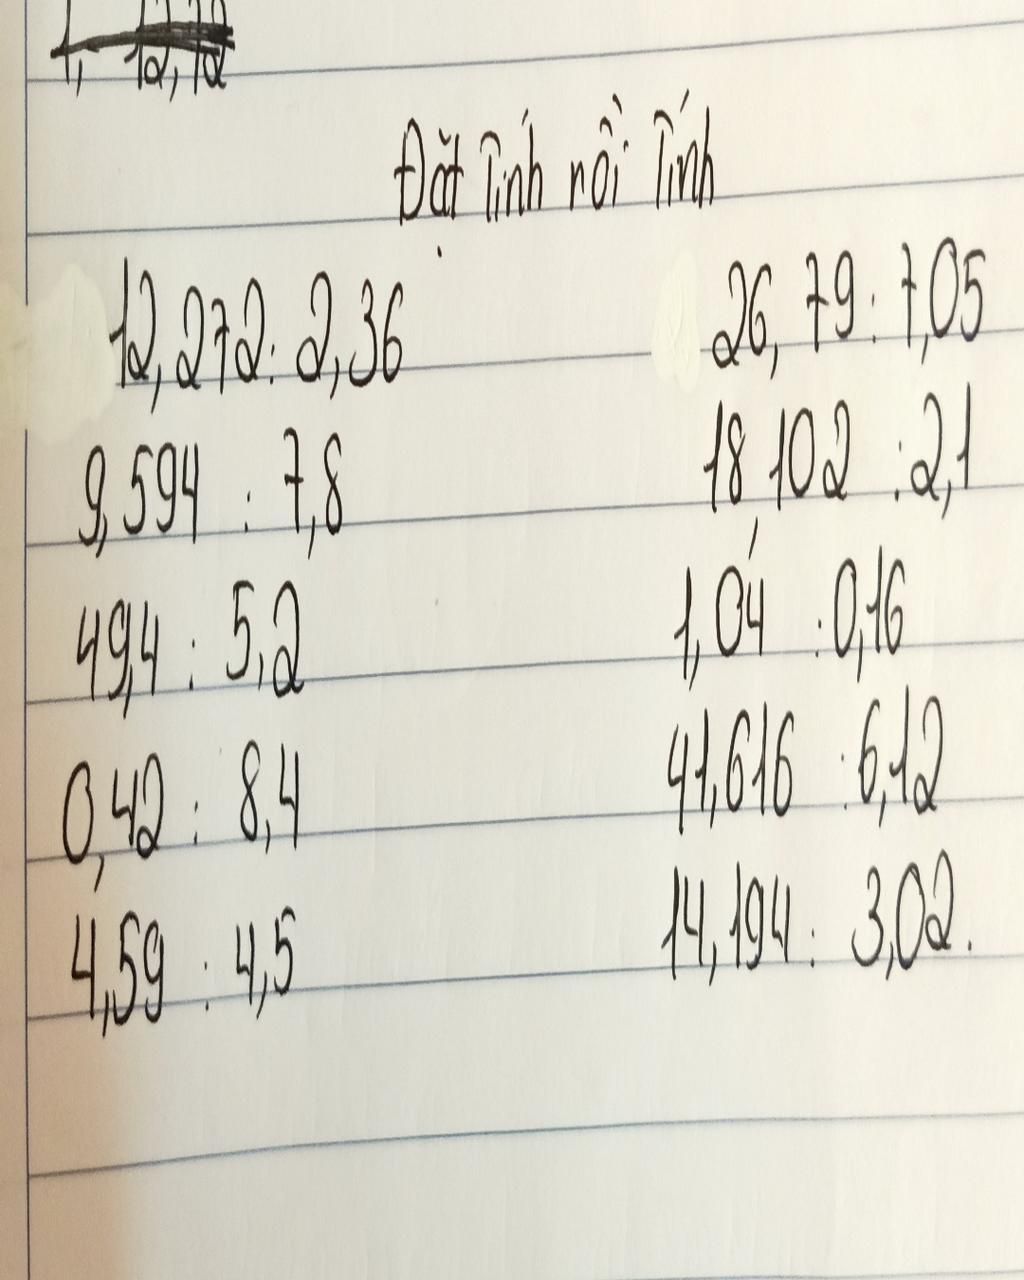 1, 12,72
Đặt Tính rồi Tính
12,272 : 2,36 26,79 : 7,05
9,594 : 7,8 18,102 : 2,1
49,4 : 5,2 1,04 : 0,16
0,42 : 8,4 41,616 : 6,12
4,59 : 4,5 14,194 : 3,02.